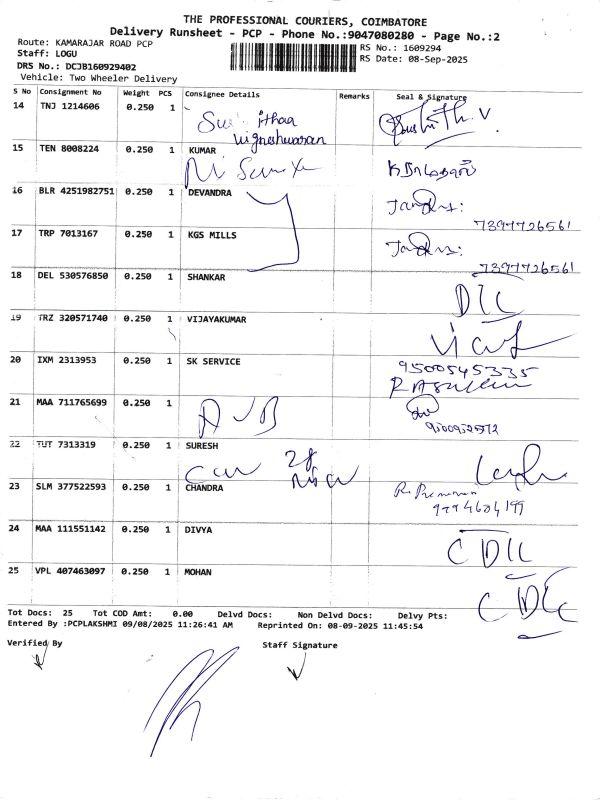 THE PROFESSIONAL COURIERS, COIMBATORE
Delivery Runsheet - PCP - Phone No.:9047080280 - Page No.:2
Route: KAMARAJAR ROAD PCP
Staff: LOGU
DRS No.: DCJB160929402
Vehicle: Two Wheeler Delivery
RS No.: 1609294
RS Date: 08-Sep-2025
S No Consignment No Weight PCS Consignee Details Remarks Seal & Signature
14 TNJ 1214606 0.250 1
Vigneshwaran
15 TEN 8008224 0.250 1 KUMAR
16 BLR 4251982751 0.250 1 DEVANDRA
7397726561
17 TRP 7013167 0.250 1 KGS MILLS
7397726561
18 DEL 530576850 0.250 1 SHANKAR
19 TRZ 320571740 0.250 1 VIJAYAKUMAR
20 IXM 2313953 0.250 1 SK SERVICE
9500545335
21 MAA 711765699 0.250 1
22 TUT 7313319 0.250 1 SURESH
23 SLM 377522593 0.250 1 CHANDRA
24 MAA 111551142 0.250 1 DIVYA
25 VPL 407463097 0.250 1 MOHAN
Tot Docs: 25 Tot COD Amt: 0.00 Delvd Docs: Non Delvd Docs: Delvy Pts:
Entered By :PCPLAKSHMI 09/08/2025 11:26:41 AM Reprinted On: 08-09-2025 11:45:54
Verified By Staff Signature